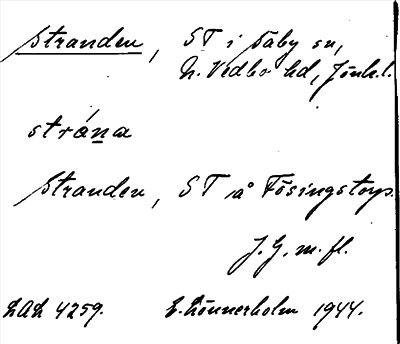 Stranden, ST i Säby sn,
N. Vedbo hd, Jönk.l.
strána
Stranden, ST å Fösingstorp.
J.G. m. fl.
LAL 4259. E. Lönnerholm 1944.